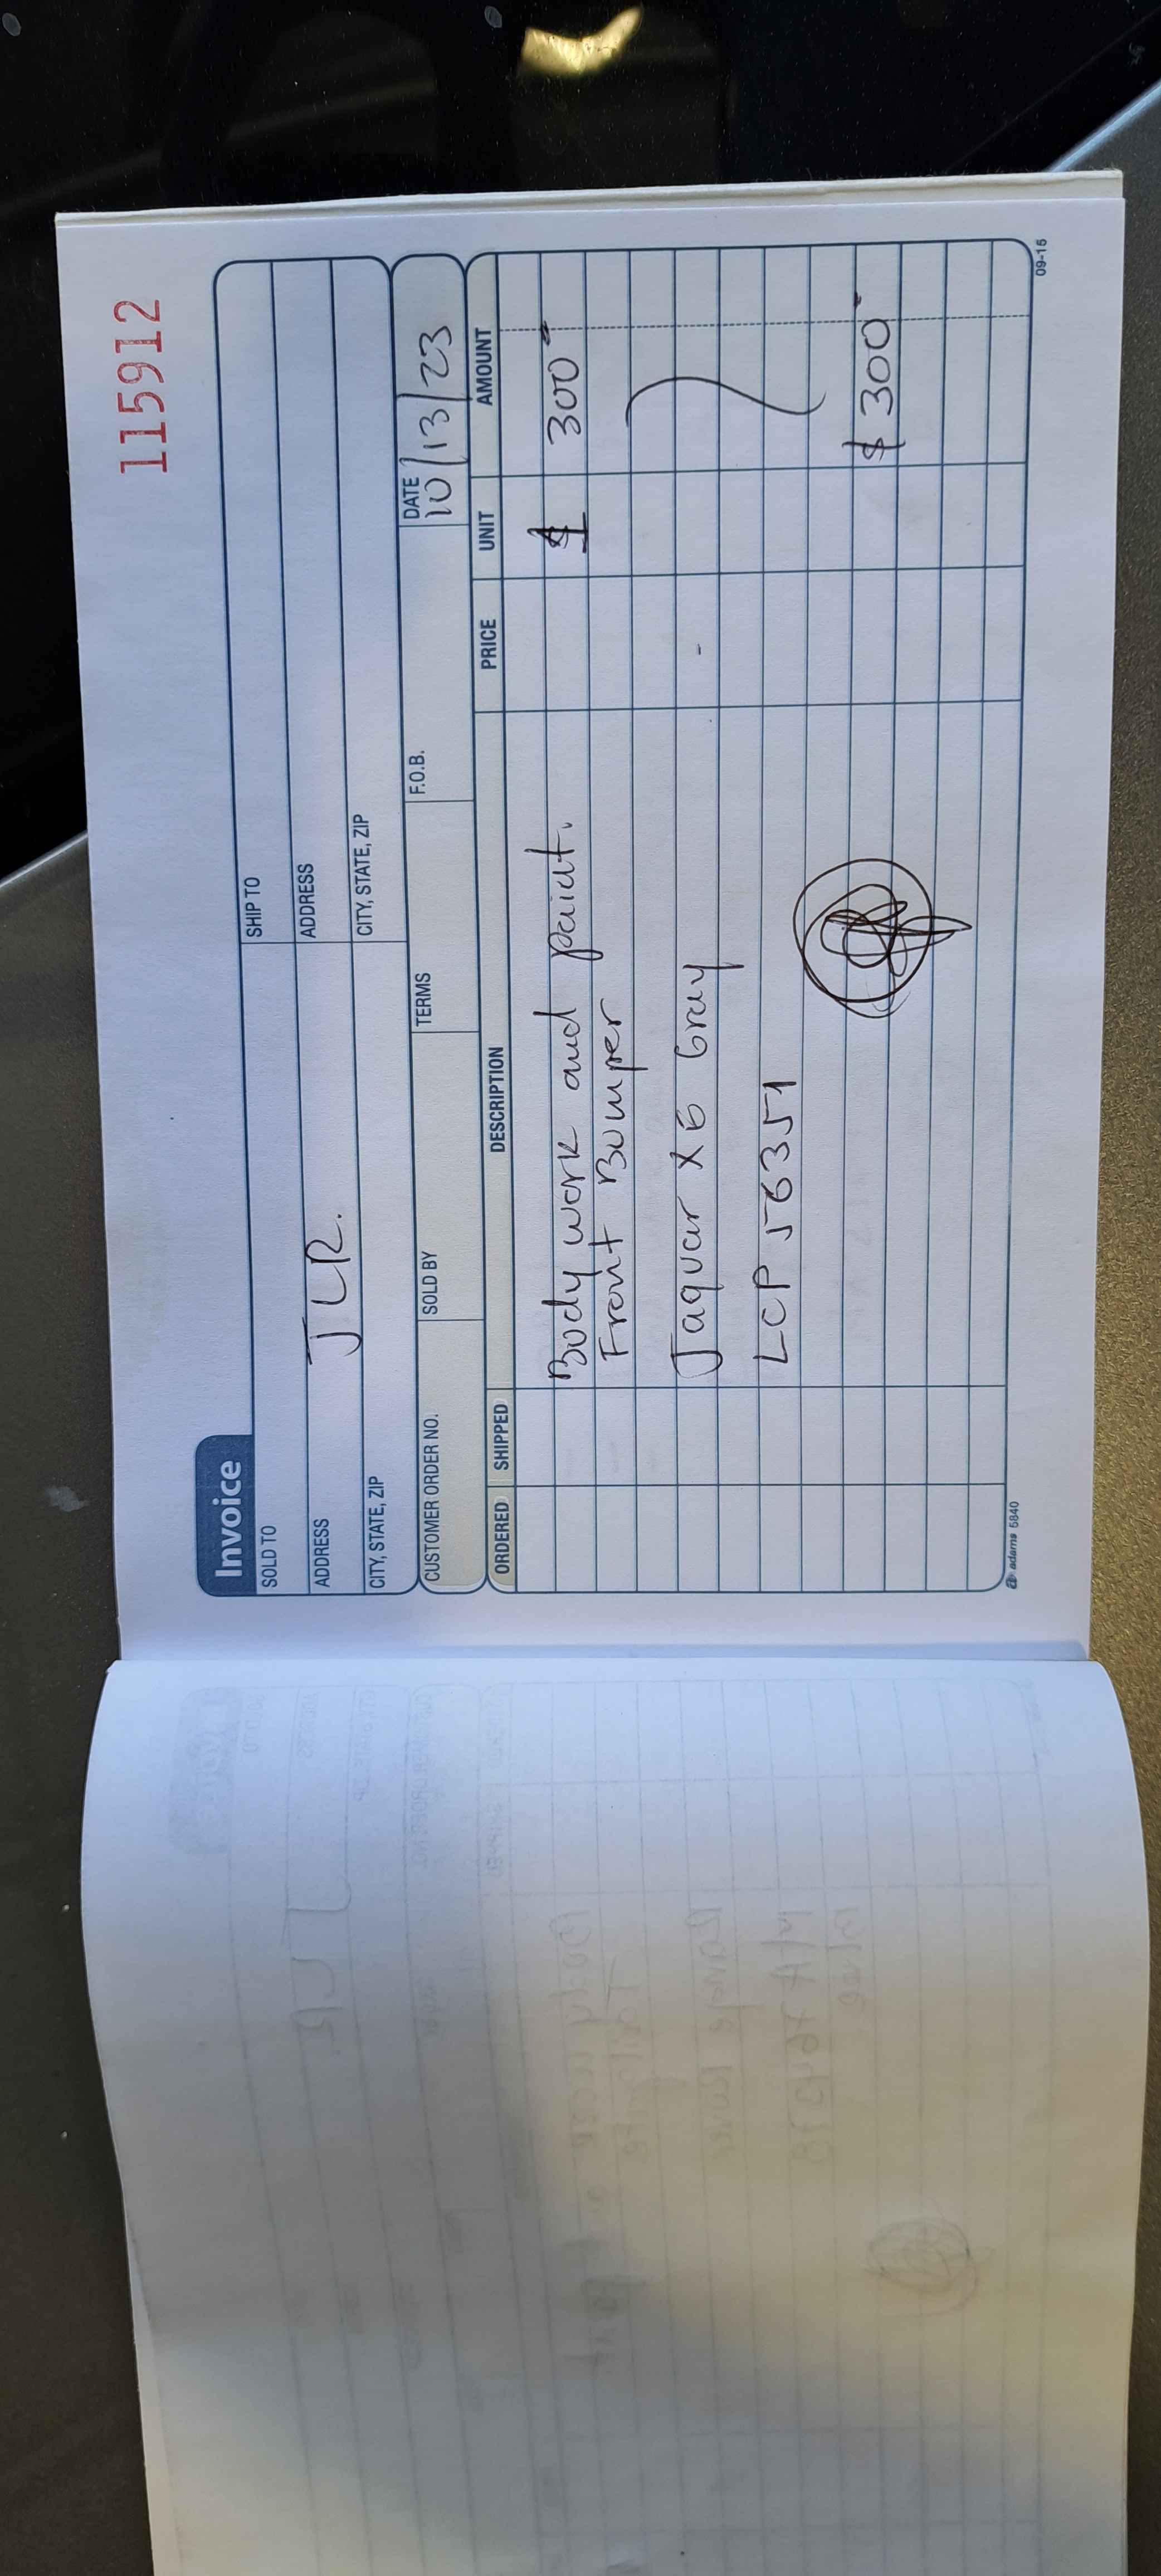 115912
Invoice
SOLD TO
SHIP TO
ADDRESS
JLR.
ADDRESS
CITY, STATE, ZIP
CITY, STATE, ZIP
CUSTOMER ORDER NO.
SOLD BY
TERMS
F.O.B.
DATE
10/13/23
ORDERED SHIPPED DESCRIPTION PRICE UNIT AMOUNT
Body work and paint. $ 300
Front Bumper
Jaguar XE Gray
LCP 56351
$ 300
adams 5840
09-15